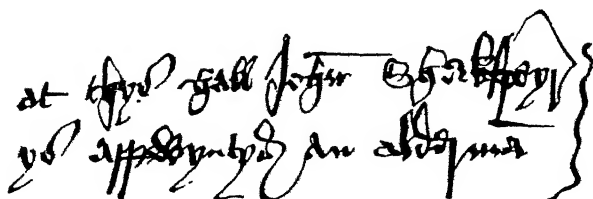 at thys hall John Shakspeyr
ys appwyntyd an alderman